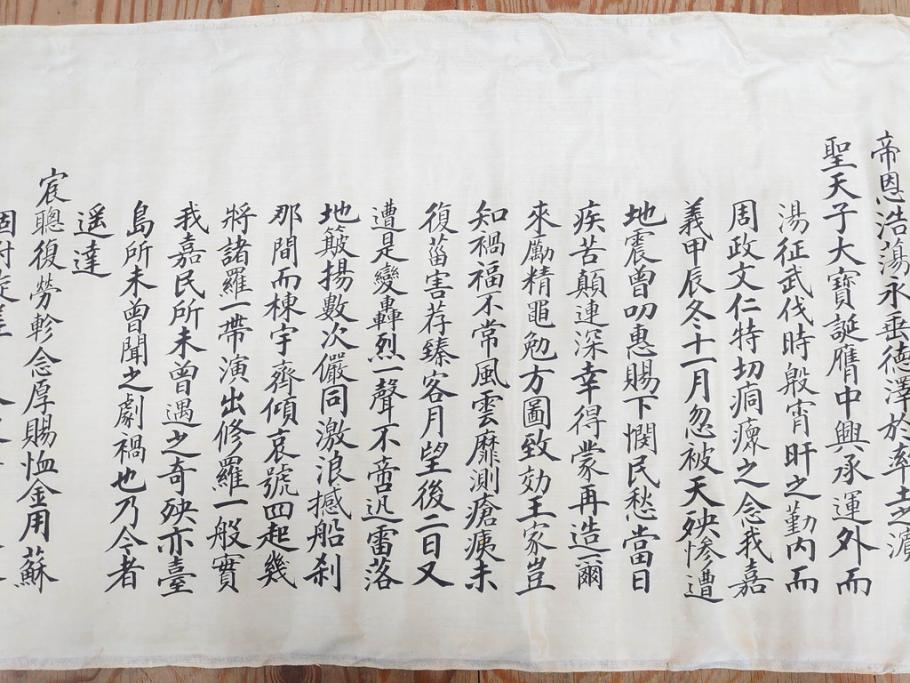 帝恩浩蕩永垂德澤於率土之濱
聖天子大寶誕膺中興承運外而
湯征武伐時殷宵旰之勤内而
周政文仁特切痌瘝之念我嘉
義甲辰冬十一月忽被天殃慘遭
地震曾叨惠賜下憫民愁當日
疾苦顛連深幸得蒙再造爾
來勵精黽勉方圖致効王家豈
知禍福不常風雲靡測瘡痍未
復菑害荐臻客月望後二日又
遭是變轟烈一聲不啻迅雷落
地簸揚數次儼同激浪撼船刹
那間而棟宇齊傾哀號四起幾
將諸羅一帶演出修羅一般實
我嘉民所未曾遇之奇殃亦臺
島所未曾聞之劇禍也乃今者
遥達
宸聰復勞軫念厚賜恤金用蘇